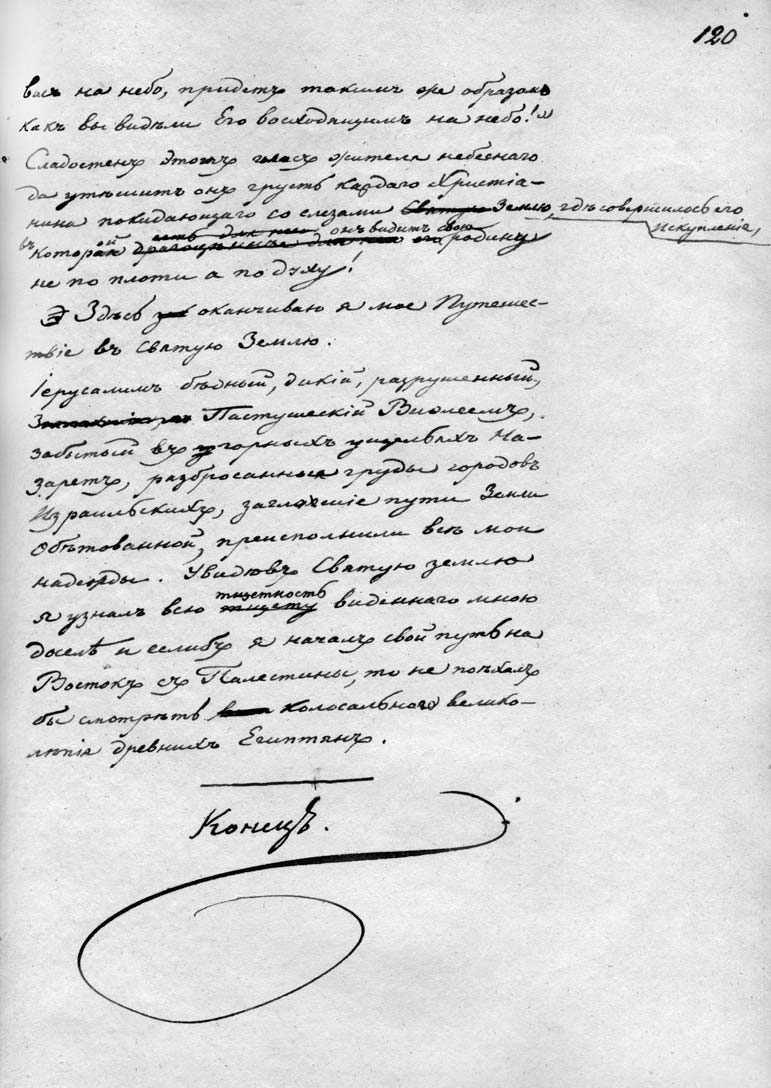 120
васъ на небо, придетъ такимъ же образомъ
какъ вы видѣли Его восходящимъ на небо!"
Сладостенъ этотъ гласъ жителя небеснаго
да утѣшитъ онъ грусть каждаго Христіа-
нина покидающаго со слезами Святую Землю, гдѣ совершилось его
искупленіе,
есть для него, онъ видитъ свою
въ которой драгоцѣннѣе для его родину
не по плоти а по духу!
Здѣсь оканчиваю я мое Путеше-
ствіе въ Святую Землю.
Іерусалимъ бѣдный, дикій, разрушенный,
Пастушескій Виѳлеемъ,
забытый въ горныхъ ущельяхъ На-
заретъ, разбросанныя груды городовъ
Израильскихъ, заглохшіе пути Земли
Обѣтованной, преисполнили всѣ мои
надежды. Увидѣвъ Святую землю
тщетность
я узналъ всю тщету виденнаго мною
доселѣ и еслибъ я началъ свой путь на
Востокъ съ Палестины, то не поѣхалъ
бы смотрѣть колосальнаго велико-
лѣпія древнихъ Египтянъ.
Конецъ.